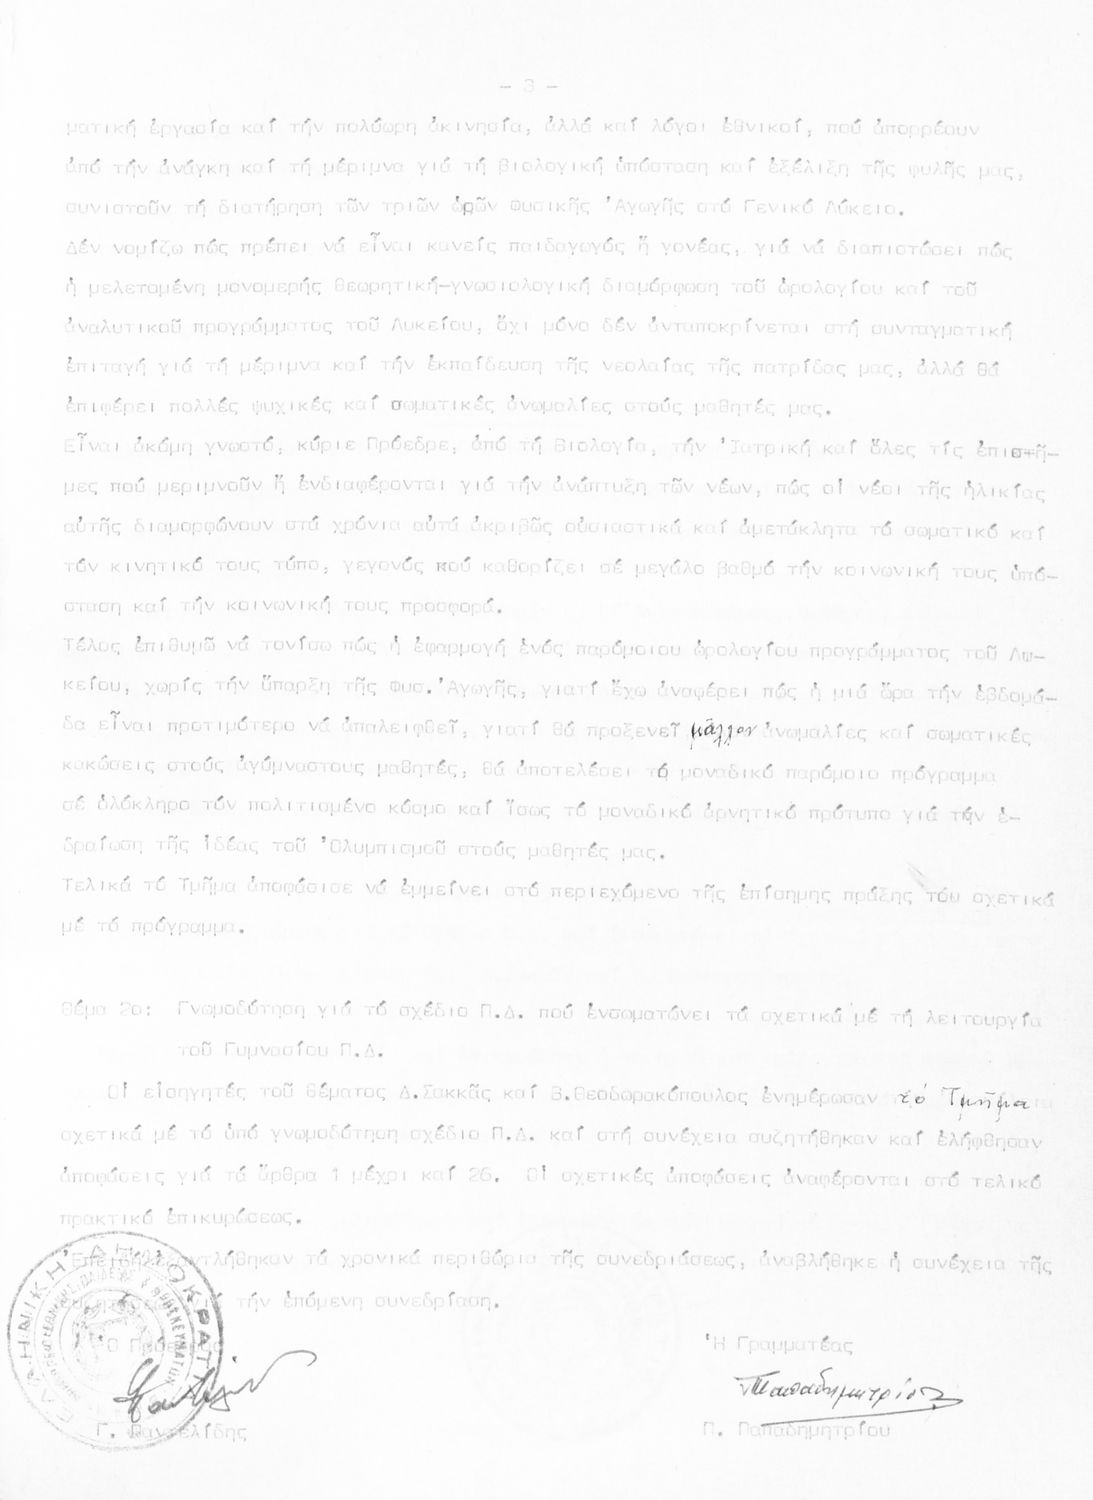 - 3 -
ματική ἐργασία καί τήν πολύωρη ἀκινησία, ἀλλά καί λόγοι ἐθνικοί, πού ἀπορρέουν
ἀπό τήν ἀνάγκη καί τή μέριμνα γιά τή βιολογική ὑπόσταση καί ἐξέλιξη τῆς φυλῆς μας,
συνιστοῦν τή διατήρηση τῶν τριῶν ὡρῶν Φυσικῆς Ἀγωγῆς στό Γενικό Λύκειο.
Δέν νομίζω πώς πρέπει νά εἶναι κανείς παιδαγωγός ἤ γονέας, γιά νά διαπιστώσει πώς
ἡ μελετομένη μονομερής θεωρητική-γνωσιολογική διαμόρφωση τοῦ ὡρολογίου καί τοῦ
ἀναλυτικοῦ προγράμματος τοῦ Λυκείου, ὄχι μόνο δέν ἀνταποκρίνεται στή συνταγματική
ἐπιταγή γιά τή μέριμνα καί τήν ἐκπαίδευση τῆς νεολαίας τῆς πατρίδας μας, ἀλλά θά
ἐπιφέρει πολλές ψυχικές καί σωματικές ἀνωμαλίες στούς μαθητές μας.
Εἶναι ἀκόμη γνωστό, κύριε Πρόεδρε, ἀπό τή Βιολογία, τήν Ἰατρική καί ὅλες τίς ἐπιστῆ-
μες πού μεριμνοῦν ἤ ἐνδιαφέρονται γιά τήν ἀνάπτυξη τῶν νέων, πώς οἱ νέοι τῆς ἡλικίας
αὐτῆς διαμορφώνουν στά χρόνια αὐτά ἀκριβῶς οὐσιαστικά καί ἀμετάκλητα τό σωματικό καί
τόν κινητικό τους τύπο, γεγονός πού καθορίζει σέ μεγάλο βαθμό τήν κοινωνική τους ὑπό-
σταση καί τήν κοινωνική τους προσφορά.
Τέλος ἐπιθυμῶ νά τονίσω πώς ἡ ἐφαρμογή ἑνός παρόμοιου ὡρολογίου προγράμματος τοῦ Λυ-
κείου, χωρίς τήν ὕπαρξη τῆς Φυσ. Ἀγωγῆς, γιατί ἔχω ἀναφέρει πώς ἡ μιά ὥρα τήν ἑβδομά-
δα εἶναι προτιμότερο νά ἀπαλειφθεῖ, γιατί θά προξενεῖ μᾶλλον ἀνωμαλίες καί σωματικές
κακώσεις στούς ἀγύμναστους μαθητές, θά ἀποτελέσει τό μοναδικό παρόμοιο πρόγραμμα
σέ ὁλόκληρο τόν πολιτισμένο κόσμο καί ἴσως τό μοναδικό ἀρνητικό πρότυπο γιά τήν ἑ-
δραίωση τῆς ἰδέας τοῦ Ὀλυμπισμοῦ στούς μαθητές μας.
Τελικά τό Τμῆμα ἀποφάσισε νά ἐμμείνει στό περιεχόμενο τῆς ἐπίσημης πράξης του σχετικά
μέ τό πρόγραμμα.
Θέμα 2ο: Γνωμοδότηση γιά τό σχέδιο Π.Δ. πού ἐνσωματώνει τά σχετικά μέ τή λειτουργία
τοῦ Γυμνασίου Π.Δ.
Οἱ εἰσηγητές τοῦ θέματος Δ.Σακκᾶς καί Β.Θεοδωρακόπουλος ἐνημέρωσαν τό Τμῆμα
σχετικά μέ τό ὑπό γνωμοδότηση σχέδιο Π.Δ. καί στή συνέχεια συζητήθηκαν καί ἐλήφθησαν
ἀποφάσεις γιά τά ἄρθρα 1 μέχρι καί 26. Οἱ σχετικές ἀποφάσεις ἀναφέρονται στό τελικό
πρακτικό ἐπικυρώσεως.
Ἐπειδή ἐξαντλήθηκαν τά χρονικά περιθώρια τῆς συνεδριάσεως, ἀναβλήθηκε ἡ συνέχεια τῆς
τήν ἑπόμενη συνεδρίαση.
Ὁ Πρόεδρος
Ἡ Γραμματέας
Παπαδημητρίου
Γ. Παντελίδης
Π. Παπαδημητρίου
ΕΛΛΗΝΙΚΗ ΔΗΜΟΚΡΑΤΙΑ